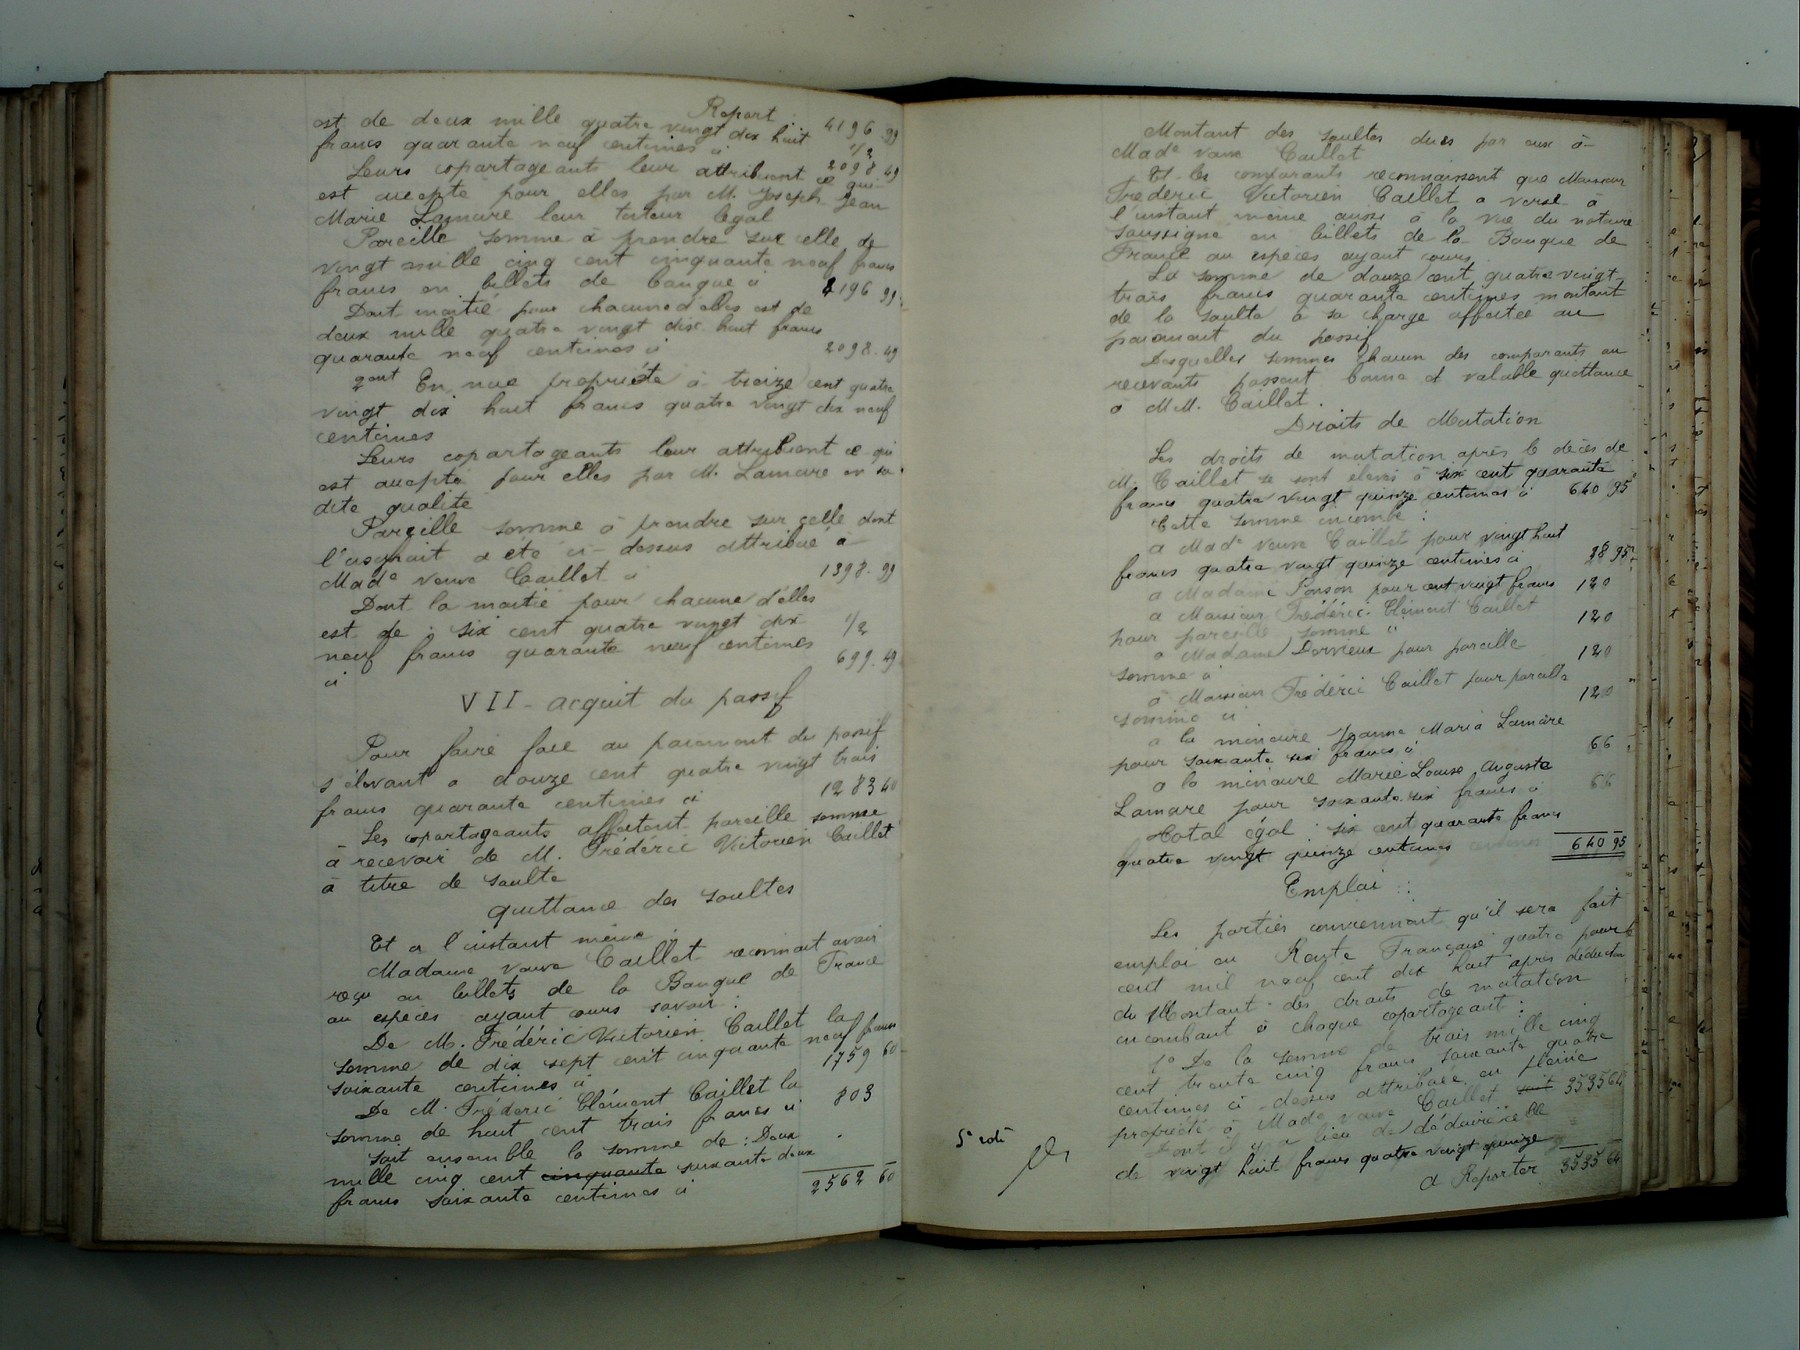 Report : 4196 99
est de deux mille quatre vingt dix huit 1/2
francs quarante neuf centimes ci 2098 49
Leurs copartageants leur attribuent ce qui
est accepté pour elles par M. Joseph Jean
Marie Lamure leur tuteur légal
Pareille somme à prendre sur celle de
vingt mille cinq cent cinquante neuf francs
francs en billets de banque ci 4196 99
Dont moitié pour chacune d'elles est de
deux mille quatre vingt dix huit francs
quarante neuf centimes ci 2098.49
2ent En nue propriété à treize cent quatre
vingt dix huit francs quatre vingt dix neuf
centimes
Leurs copartageants leur attribuent ce qui
est accepté pour elles par M. Lamure en sa
dite qualité
Pareille somme à prendre sur celle dont
l'usufruit a été ci-dessus attribué à
Made veuve Caillet ci 1398.99
Dont la moitié pour chacune d'elles
est de : six cent quatre vingt dix 1/2
neuf francs quarante neuf centimes
ci 699.49
VII - acquit du passif
Pour faire face au paiement du passif
s'élevant a douze cent quatre vingt trois
francs quarante centimes ci 1283 40
Les copartageants affectent pareille somme
à recevoir de M. Frédéric Victorien Caillet
à titre de soulte
Quittance des soultes
Et a l'instant même :
Madame veuve Caillet reconnait avoir
reçu en billets de la Banque de France
en espèces ayant cours savoir :
De M. Frédéric Victorien Caillet la
somme de dix sept cent cinquante neuf francs
soixante centimes ci 1759 60
De M. Frédéric Clément Caillet la
somme de huit cent trois francs ci 803
Soit ensemble la somme de : Deux
mille cinq cent cinquante soixante deux
francs soixante centimes ci 2562 60
Montant des soultes dues par eux à
Made veuve Caillet
Et les comparants reconnaissent que Monsieur
Frédéric Victorien Caillet a versé à
l'instant même aussi à la vue du notaire
soussigné en billets de la Banque de
France en espèces ayant cours
La somme de douze cent quatre vingt
trois francs quarante centimes montant
de la soulte à sa charge affectée au
paiement du passif
Desquelles sommes chacun des comparants en
recevants passent bonne et valable quittance
à M.M. Caillet.
Droits de Mutation
Les droits de mutation après le décès de
M. Caillet se sont élevés à six cent quarante
francs quatre vingt quinze centimes ci 640 95
Cette somme incombe :
a Made veuve Caillet pour vingt huit
francs quatre vingt quinze centimes ci 28 95
a Madame Ponson pour cent vingt francs 120
a Monsieur Frédéric Clément Caillet
pour pareille somme ci 120
a Madame Dervieux pour pareille
somme ci 120
a Monsieur Frédéric Caillet pour pareille
somme ci 120
a la mineure Jeanne Maria Lamure
pour soixante six francs ci 66
a la mineure Marie Louise Augusta
Lamure pour soixante six francs ci 66
Total égal : six cent quarante francs
quatre vingt quinze centimes 640 95
Emploi :
Les parties conviennent qu'il sera fait
emploi en Rente Française quatre pour %
cent mil neuf cent dix huit après déduction
du Montant des droits de mutation
incombant à chaque copartageant :
1° De la somme de trois mille cinq
cent trente cinq francs soixante quatre
centimes ci-dessus attribuée en pleine
propriété à Made veuve Caillet soit 3535 64
Dont il y a lieu de déduire celle
de vingt huit francs quatre vingt quinze
a Reporter 3535 64
5e rôle